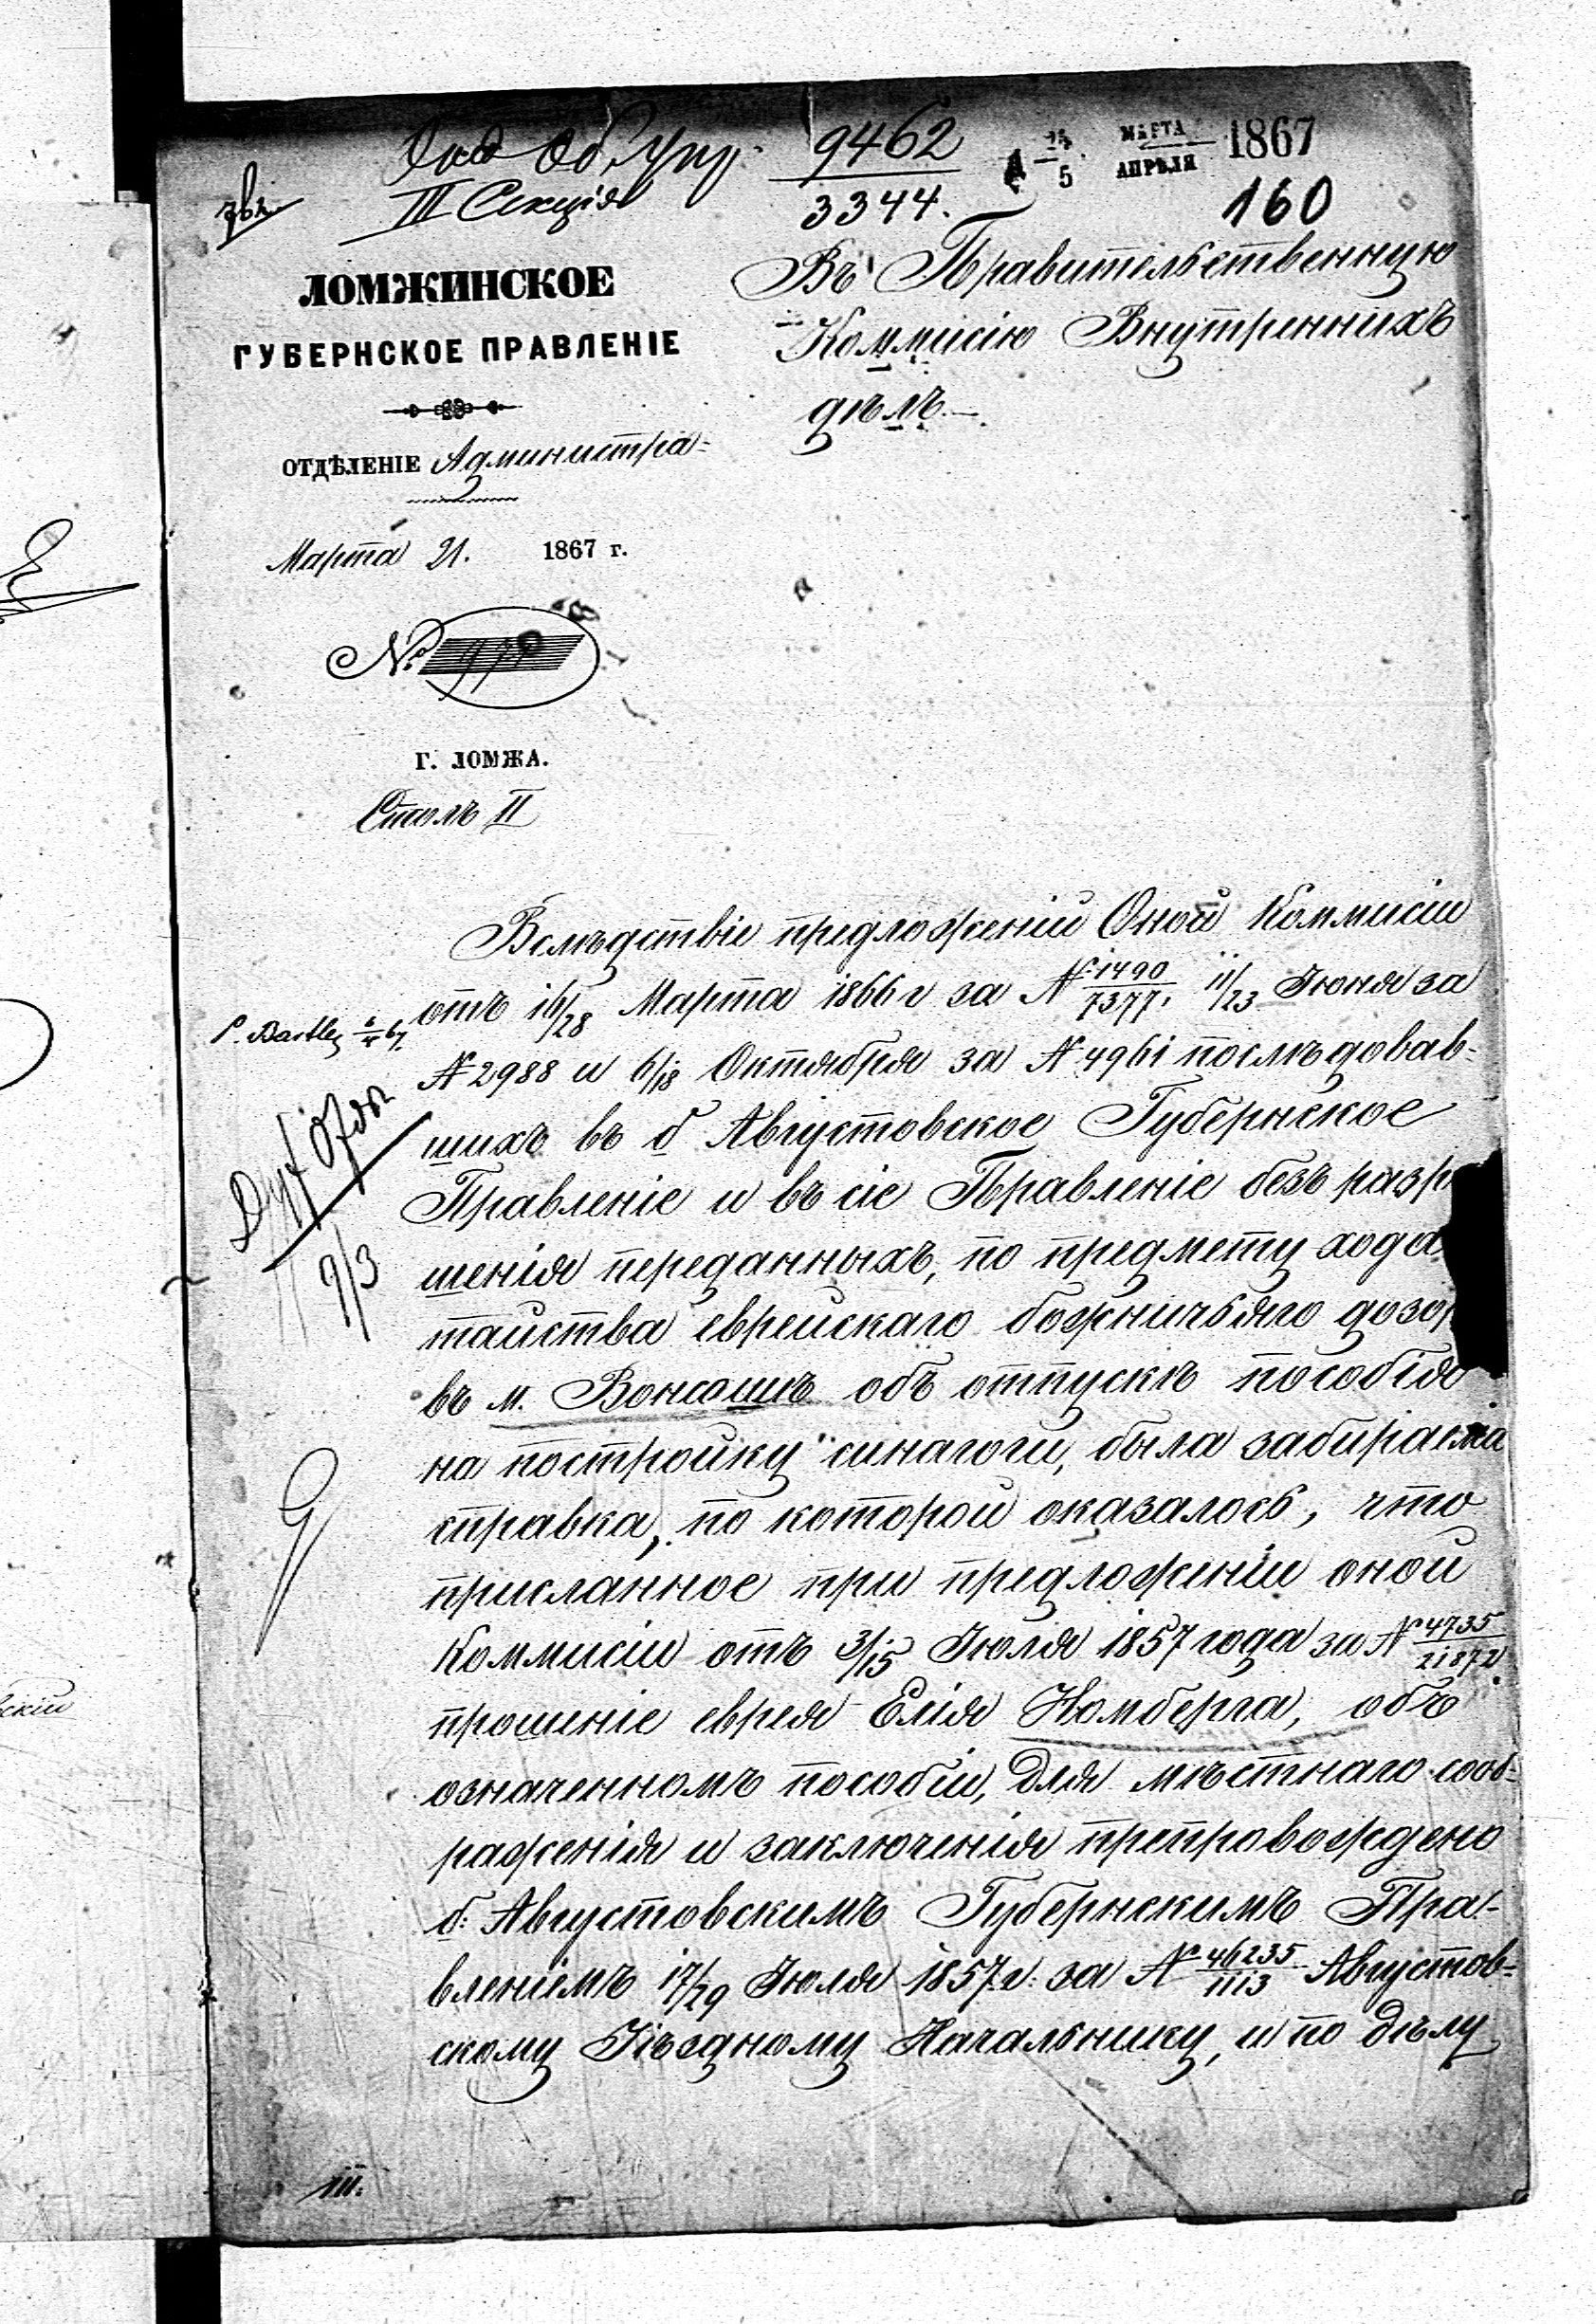 III Секція
9462
3344.
МАРТА
5 АПРѢЛЯ 1867
160
ЛОМЖИНСКОЕ
ГУБЕРНСКОЕ ПРАВЛЕНІЕ
ОТДѢЛЕНІЕ Администра-
Марта 21. 1867 г.
№
Г. ЛОМЖА.
Столъ II
Въ Правительственную
Коммисію Внутреннихъ
дѣлъ.
Вслѣдствіе предложеній Оной Коммисіи
отъ 16/28 Марта 1866 г за № 1490/7377, 11/23 Іюня за
№ 2988 и 6/18 Октября за № 4961 послѣдовав-
шихъ въ б Августовское Губернское
Правленіе и въ сіе Правленіе безъ разр
шенія переданныхъ, по предмету хода
тайства еврейскаго божничьяго дозор
въ м. Вонсошѣ объ отпускѣ пособія
на постройку синагоги, была забираема
справка, по которой оказалось, что
присланное при предложеніи оной
Коммисіи отъ 3/15 Іюля 1857 года за № 4735/21872
прошеніе еврея Елія Номберга, объ
означенномъ пособіи, для мѣстнаго сооб-
раженія и заключенія препровождено
б: Августовскимъ Губернскимъ Пра-
вленіемъ 17/29 Іюля 1857 г. за № 46235/1113 Августов-
скому Уѣздному Начальнику, и по дѣлу
III.